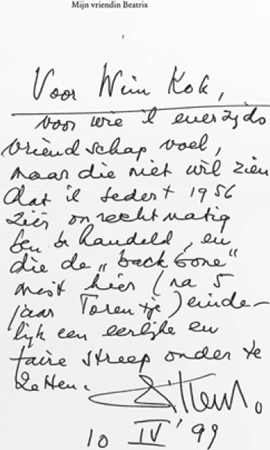 Mijn vriendin Beatrix
Voor Wim Kok,
voor wie ik enerzijds
vriendschap voel,
maar die niet wil zien
dat ik sedert 1956
zéér onrechtmatig
ben behandeld, en
die de „backbone"
mist hier (na 5
jaar Torentje) einde-
lijk een eerlijke en
faire streep onder te
zetten.
10 IV '99